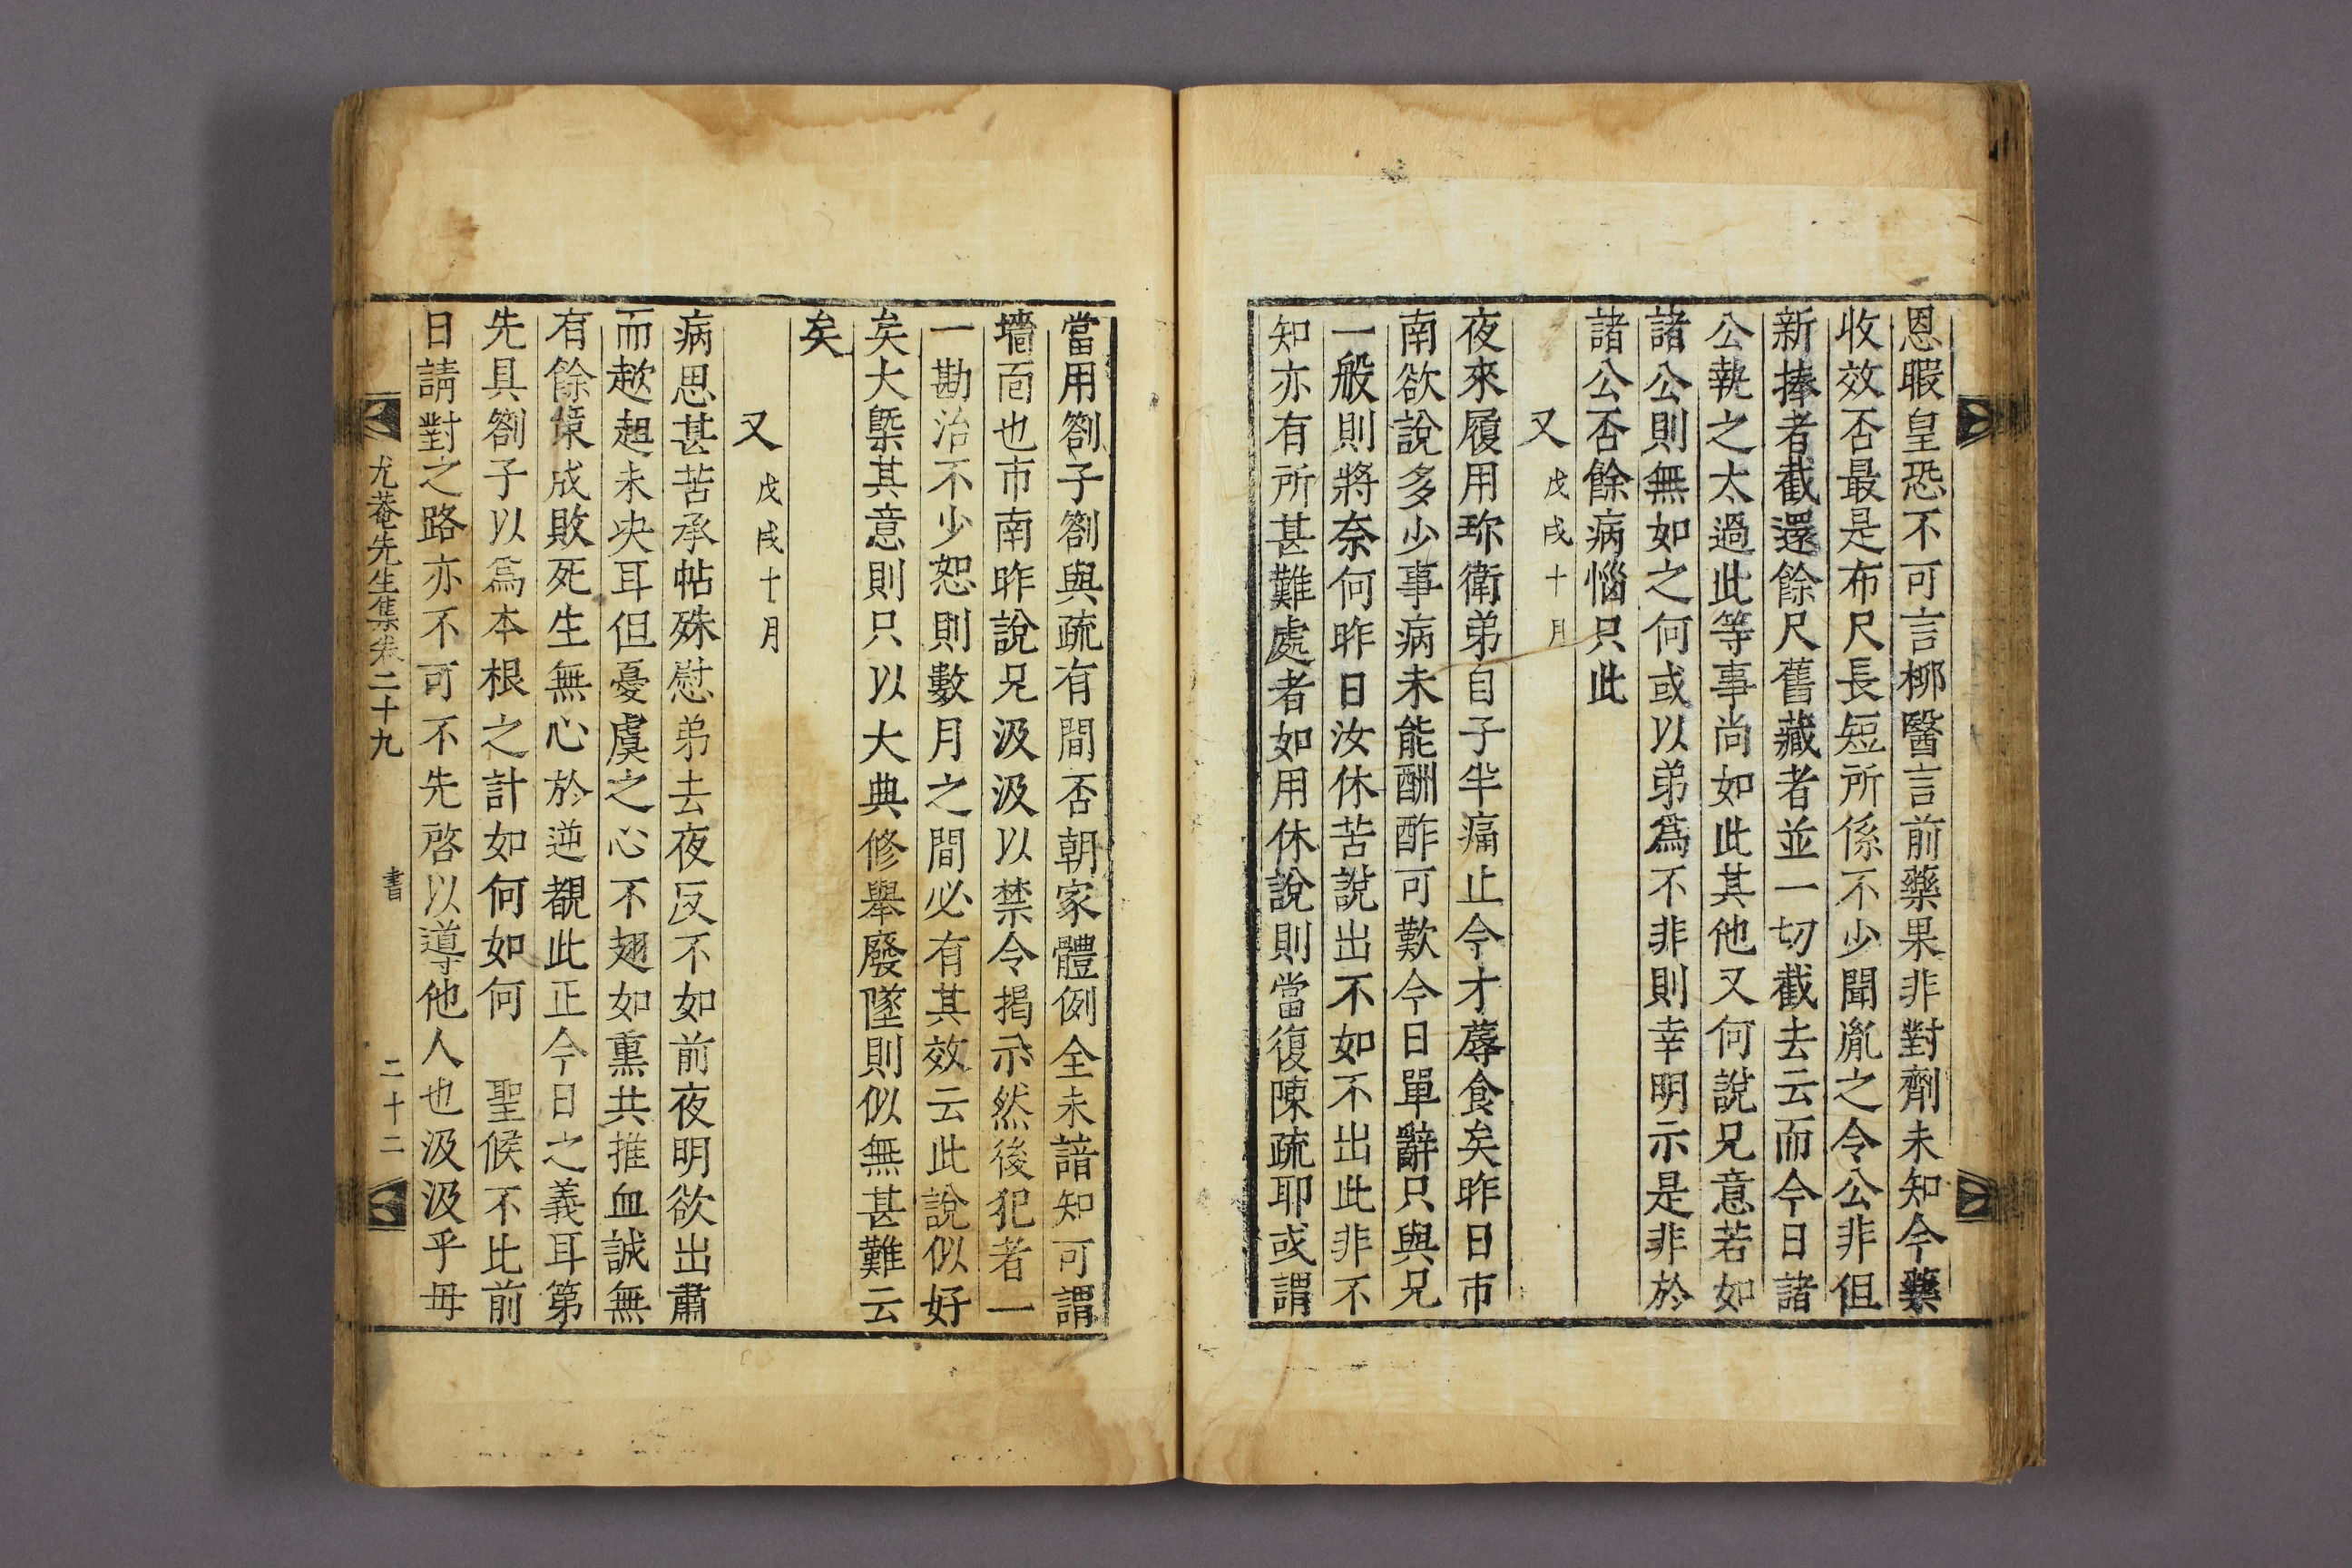 恩暇皇恐不可言柳醫言前藥果非對劑未知今藥
收效否最是布尺長短所係不少聞胤之令公非但
新捧者截還餘尺舊藏者並一切截去云而今日諸
公執之太過此等事尚如此其他又何說兄意若如
諸公則無如之何或以弟爲不非則幸明示是非於
諸公否餘病惱只此
又 戊戌十月
夜來履用珎衛弟自子半痛止今才蓐食矣昨日市
南欲說多少事病未能酬酢可歎今日單辭只與兄
一般則將奈何昨日汝休苦說出不如不出此非不
知亦有所甚難處者如用休說則當復陳疏耶或謂
當用劄子劄與疏有間否朝家體例全未諳知可謂
墻面也市南昨說兄汲汲以禁令揭示然後犯者一
一勘治不少恕則數月之間必有其效云此說似好
矣大槩其意則只以大典修擧廢墜則似無甚難云
矣
又 戊戌十月
病思甚苦承帖殊慰弟去夜反不如前夜明欲出肅
而趑趄未决耳但憂虞之心不翅如熏共推血誠無
有餘憾成敗死生無心於逆覩此正今日之義耳第
先具劄子以爲本根之計如何如何 聖候不比前
日請對之路亦不可不先啓以導他人也汲汲乎毋
尤菴先生集卷二十九 書 二十二